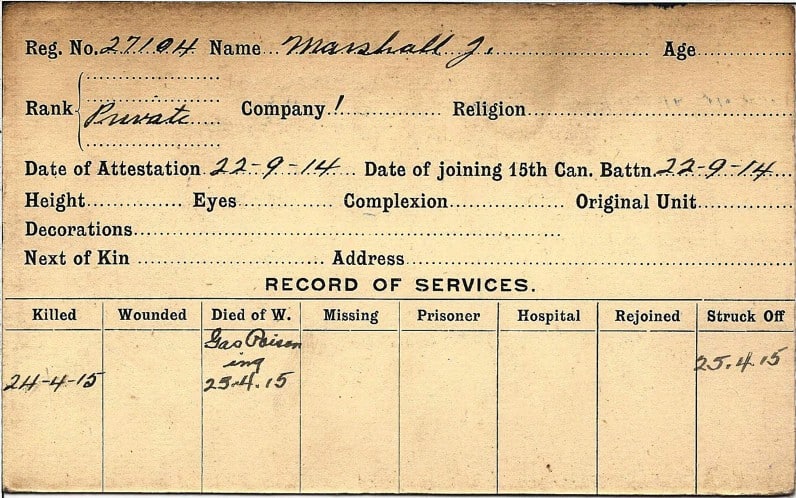 Reg. No. 27104 Name Marshall J. Age
Rank Private Company 1 Religion
Date of Attestation 22-9-14 Date of joining 15th Can. Battn. 22-9-14
Height Eyes Complexion Original Unit
Decorations
Next of Kin Address
RECORD OF SERVICES.
Killed Wounded Died of W. Missing Prisoner Hospital Rejoined Struck Off
Gas Poison
ing 25.4.15
24-4-15 25.4.15